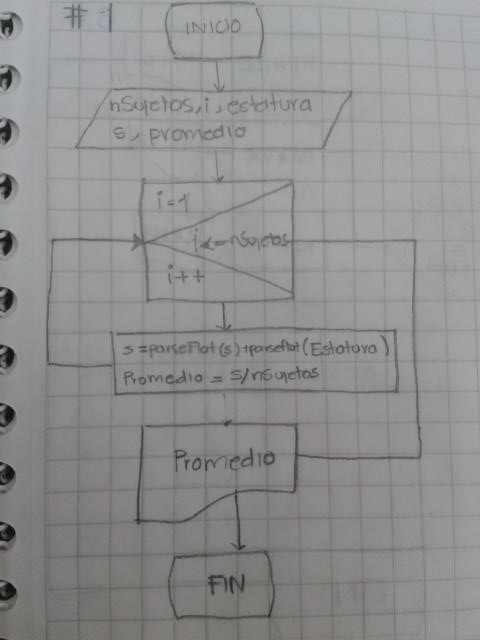 # 1
INICIO
nSujetos, i, estatura
s, promedio
i=1
i<=nSujetos
i++
s=parseFlot(s)+parseflot(Estatura)
Promedio = s/nSujetos
Promedio
FIN